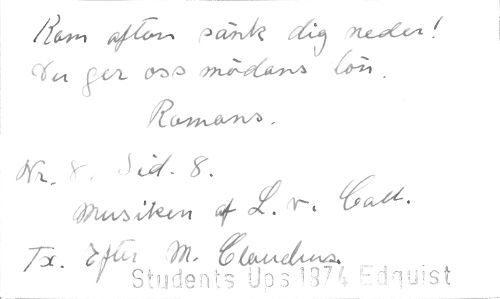 Kom afton sänk dig neder!
Du ger oss mödans lön.
Romans.
Nr. 8. Sid. 8.
Musiken af L. v. Call.
Tx. Efter M. Claudius.
Students Ups 1874 Edquist